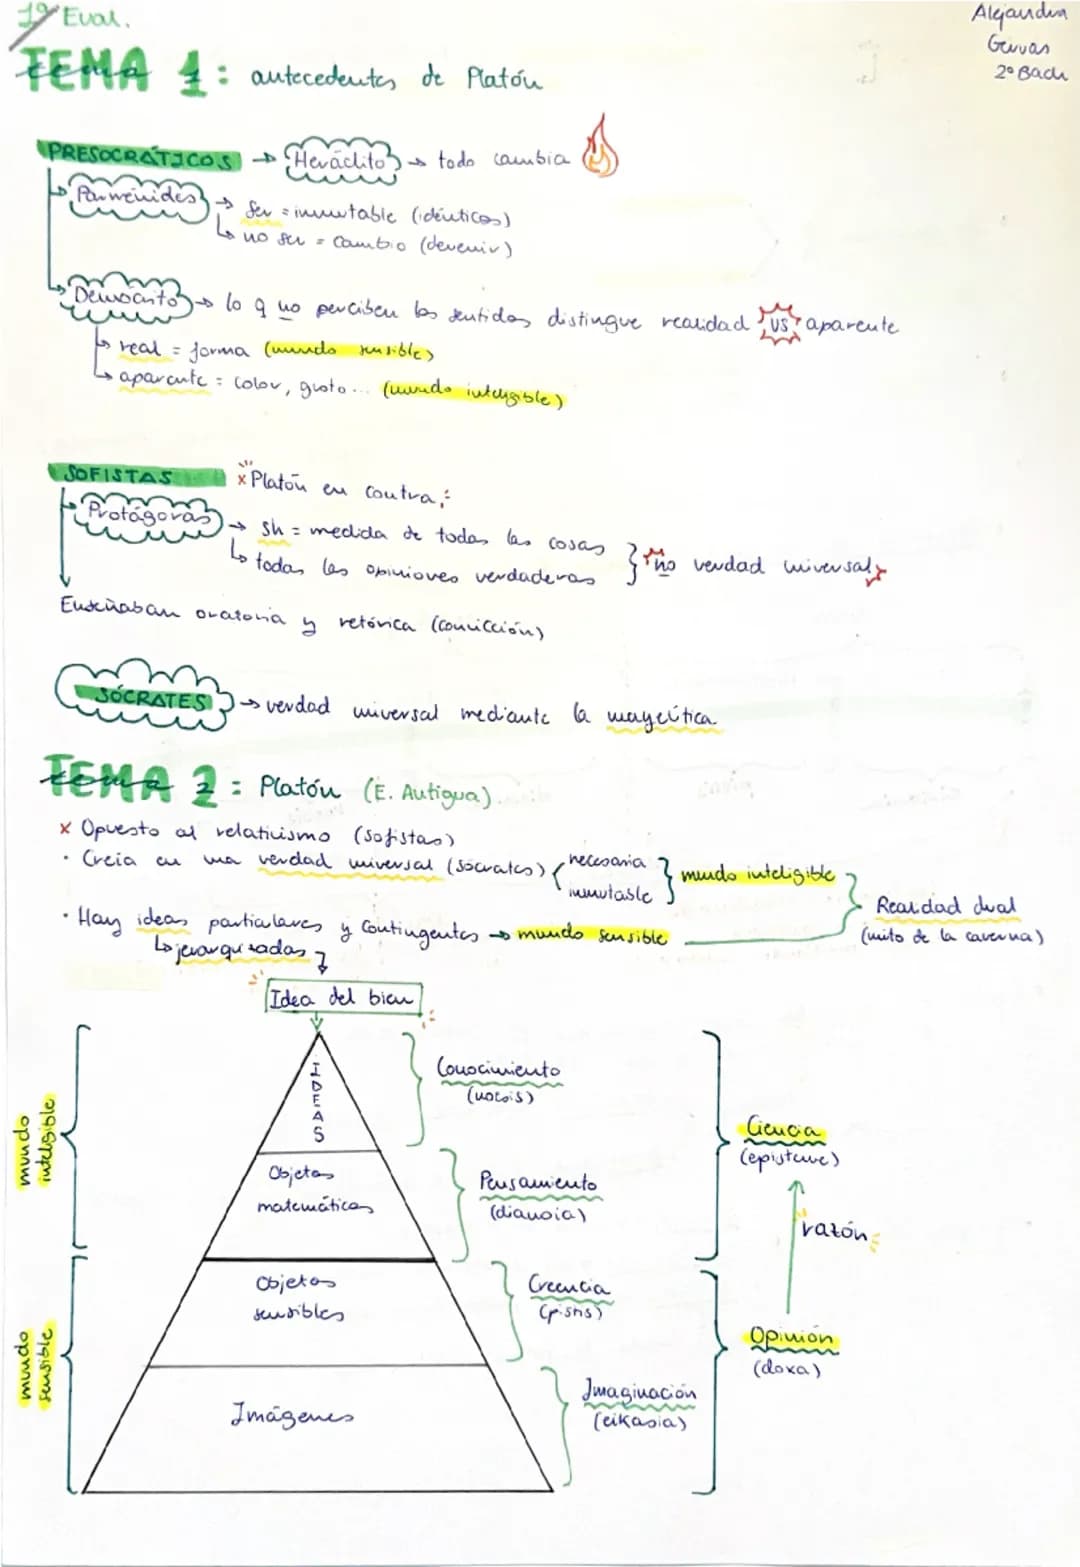 1ª Eval.
Alejandra
Gervas
2º Bach
TEMA 1: antecedentes de Platón
PRESOCRÁTICOS → Heráclito → todo cambia
Parménides → Ser = inmutable (idénticos)
↳ no ser = Cambio (devenir)
Demócrito → lo q no perciben los sentidos distingue realidad vs aparente
↳ real = forma (mundo sensible)
↳ aparente = color, gusto... (mundo inteligible)
SOFISTAS x Platón en contra:
Protágoras → sh = medida de todas las cosas } no verdad universal
↳ todas las opiniones verdaderas
Enseñaban oratoria y retórica (convicción)
SÓCRATES → verdad universal mediante la mayeútica
TEMA 2: Platón (E. Antigua)
x Opuesto al relativismo (sofistas)
· Creía en una verdad universal (Sócrates) { necesaria } mundo inteligible
inmutable
Realidad dual
(mito de la caverna)
· Hay ideas particulares y contingentes → mundo sensible
↳ jerarquizadas
Idea del bien
IDEAS
Conocimiento
(noesis)
mundo
inteligible
Ciencia
(episteme)
Objetos
matemáticos
Pensamiento
(dianoia)
razón
Objetos
sensibles
Creencia
(pistis)
mundo
sensible
Opinión
(doxa)
Imágenes
Imaginación
(eikasia)